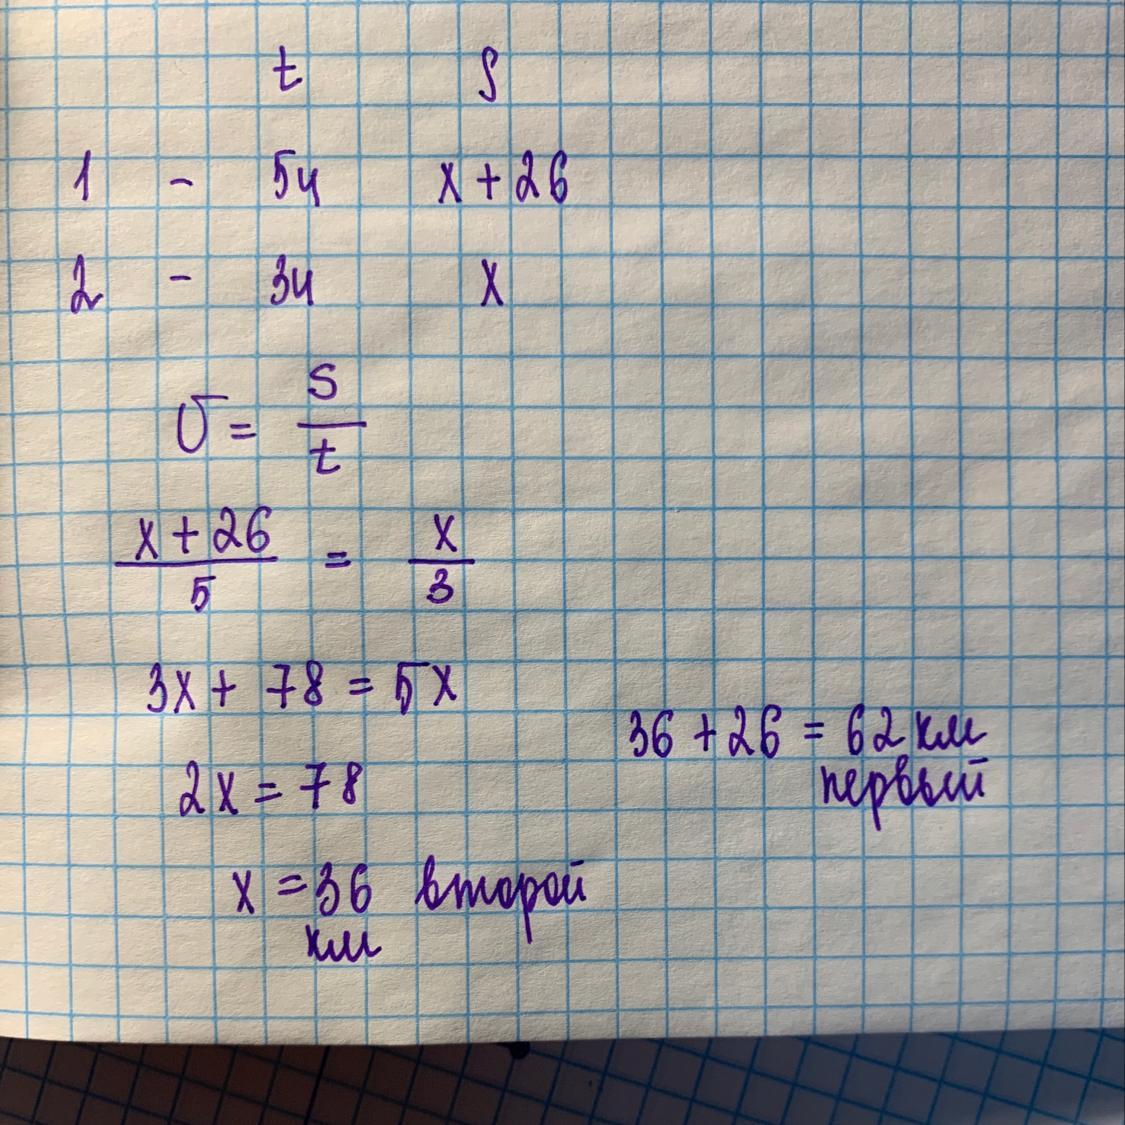 t S
1 - 5ч x + 26
2 - 3ч x
υ = s/t
x + 26/5 = x/3
3x + 78 = 5x
2x = 78
x = 36 второй
км
36 + 26 = 62 км
первый